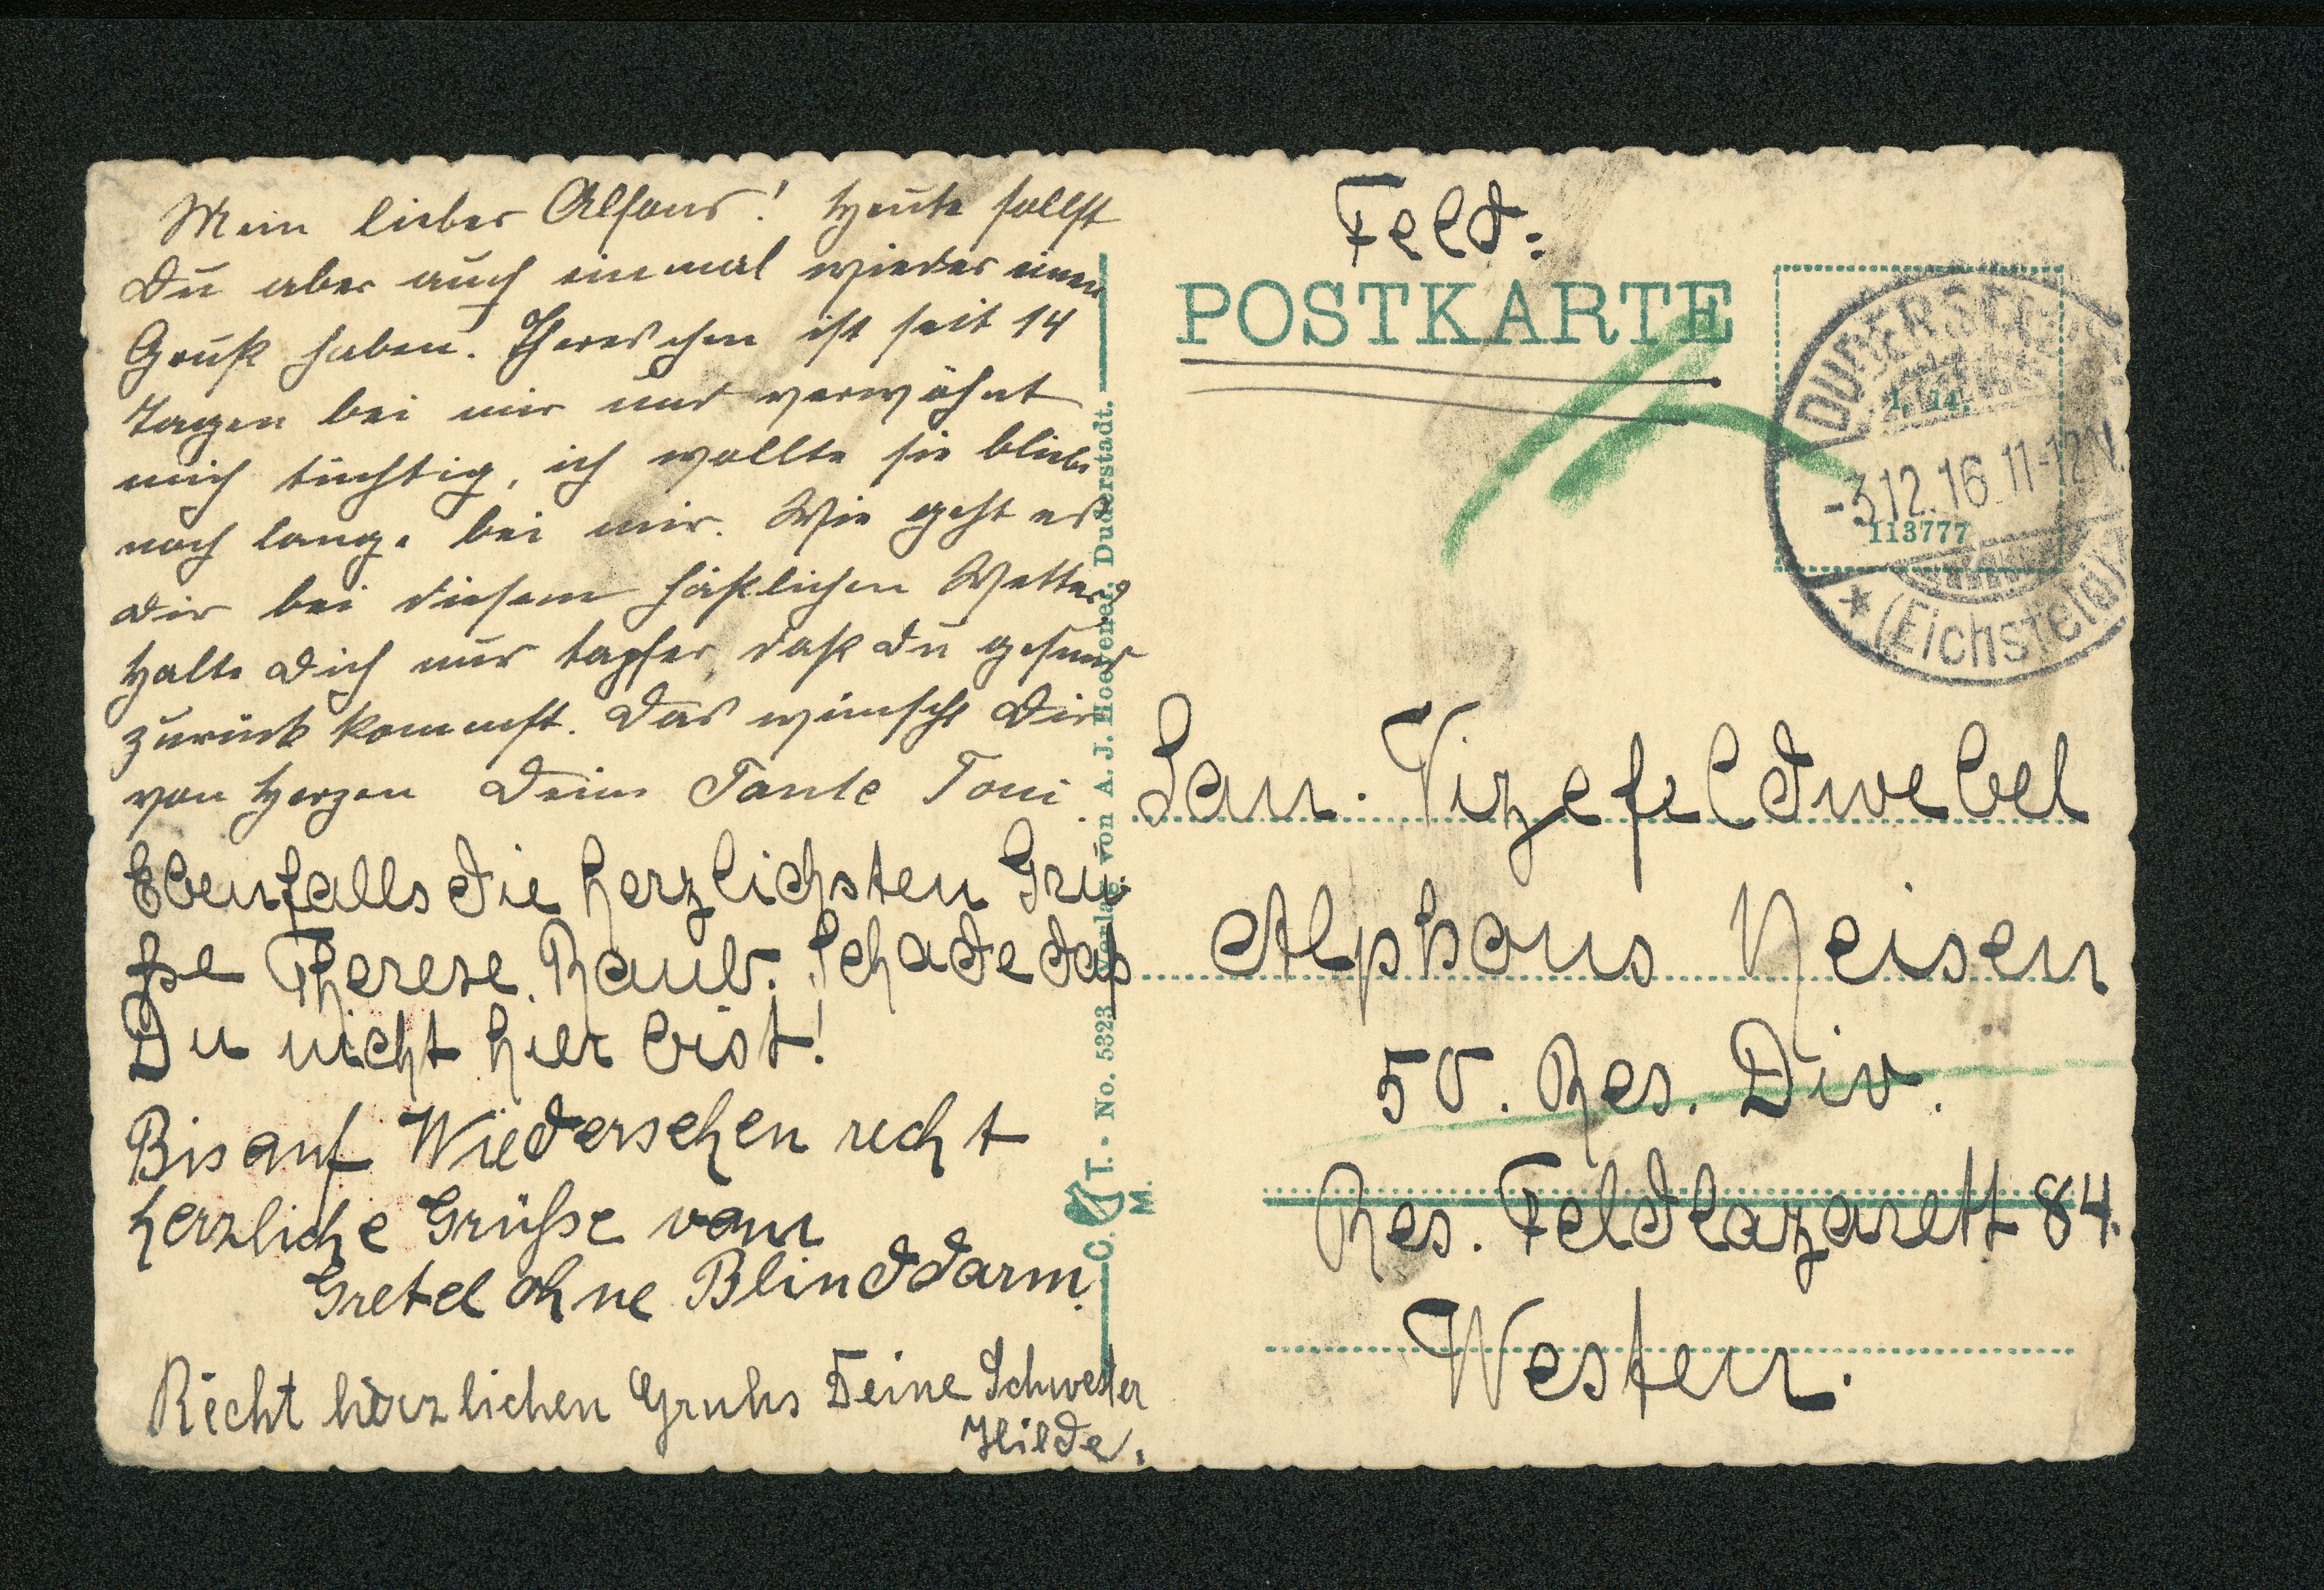 Mein lieber Alfons! Heute sollst
Du aber auch einmal wieder einen
Gruß haben. Thereschen ist seit 14
Tagen bei mir und verwöhnt
mich tüchtig, ich wollte sie bliebe
noch lange bei mir. Wie geht es
Dir bei diesem häßlichen Wetter?
Halte Dich nur tapfer, daß Du gesund
zurück kommst. Das wünscht Dir
von Herzen Deine Tante Toni.
Ebenfalls die herzlichsten Grü-
ße Therese Raub. Schade daß
Du nicht hier bist!
Bis auf Wiedersehen recht
herzliche Grüße vom
Gretel ohne Blinddarm.
Recht herzlichen Gruhs Deine Schwester
Hilde.
C. T. M. - No. 5323 Verlag von A. J. Hoevener, Duderstadt.
Feld:
POSTKARTE
1. 14.
113777
DUDERSTADT
-3.12.16. 11-12 N.
* (Eichsfeld)
San. Vizefeldwebel
Alphons Neisen
50. Res. Div.
Res. Feldlazarett 84.
Westen.